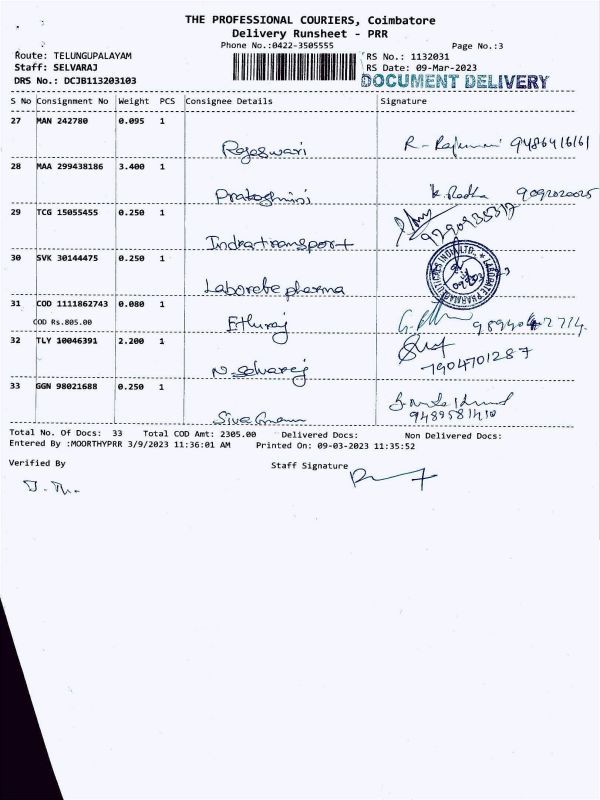 THE PROFESSIONAL COURIERS, Coimbatore
Delivery Runsheet - PRR
Phone No.:0422-3505555
Page No.:3
Route: TELUNGUPALAYAM
RS No.: 1132031
Staff: SELVARAJ
RS Date: 09-Mar-2023
DRS No.: DCJB113203103
DOCUMENT DELIVERY
S No Consignment No Weight PCS Consignee Details Signature
27 MAN 242780 0.095 1
Rajeswari
28 MAA 299438186 3.400 1
K. Radha 9092020025
29 TCG 15055455 0.250 1
Indratransport
30 SVK 30144475 0.250 1
Laborate pharma
31 COD 1111862743 0.080 1
COD Rs.805.00
Ethuraj
32 TLY 10046391 2.200 1
N. Selvaraj
7904701287
33 GGN 98021688 0.250 1
9489581410
Total No. Of Docs: 33 Total COD Amt: 2305.00 Delivered Docs: Non Delivered Docs:
Entered By :MOORTHYPRR 3/9/2023 11:36:01 AM Printed On: 09-03-2023 11:35:52
Verified By
Staff Signature